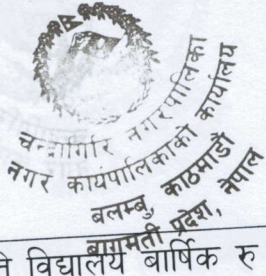 चन्द्रागिरि नगरपालिका
नगर कार्यपालिकाको कार्यालय
बलम्बु, काठमाडौं
बागमती प्रदेश, नेपाल
विद्यालय बार्षिक रु